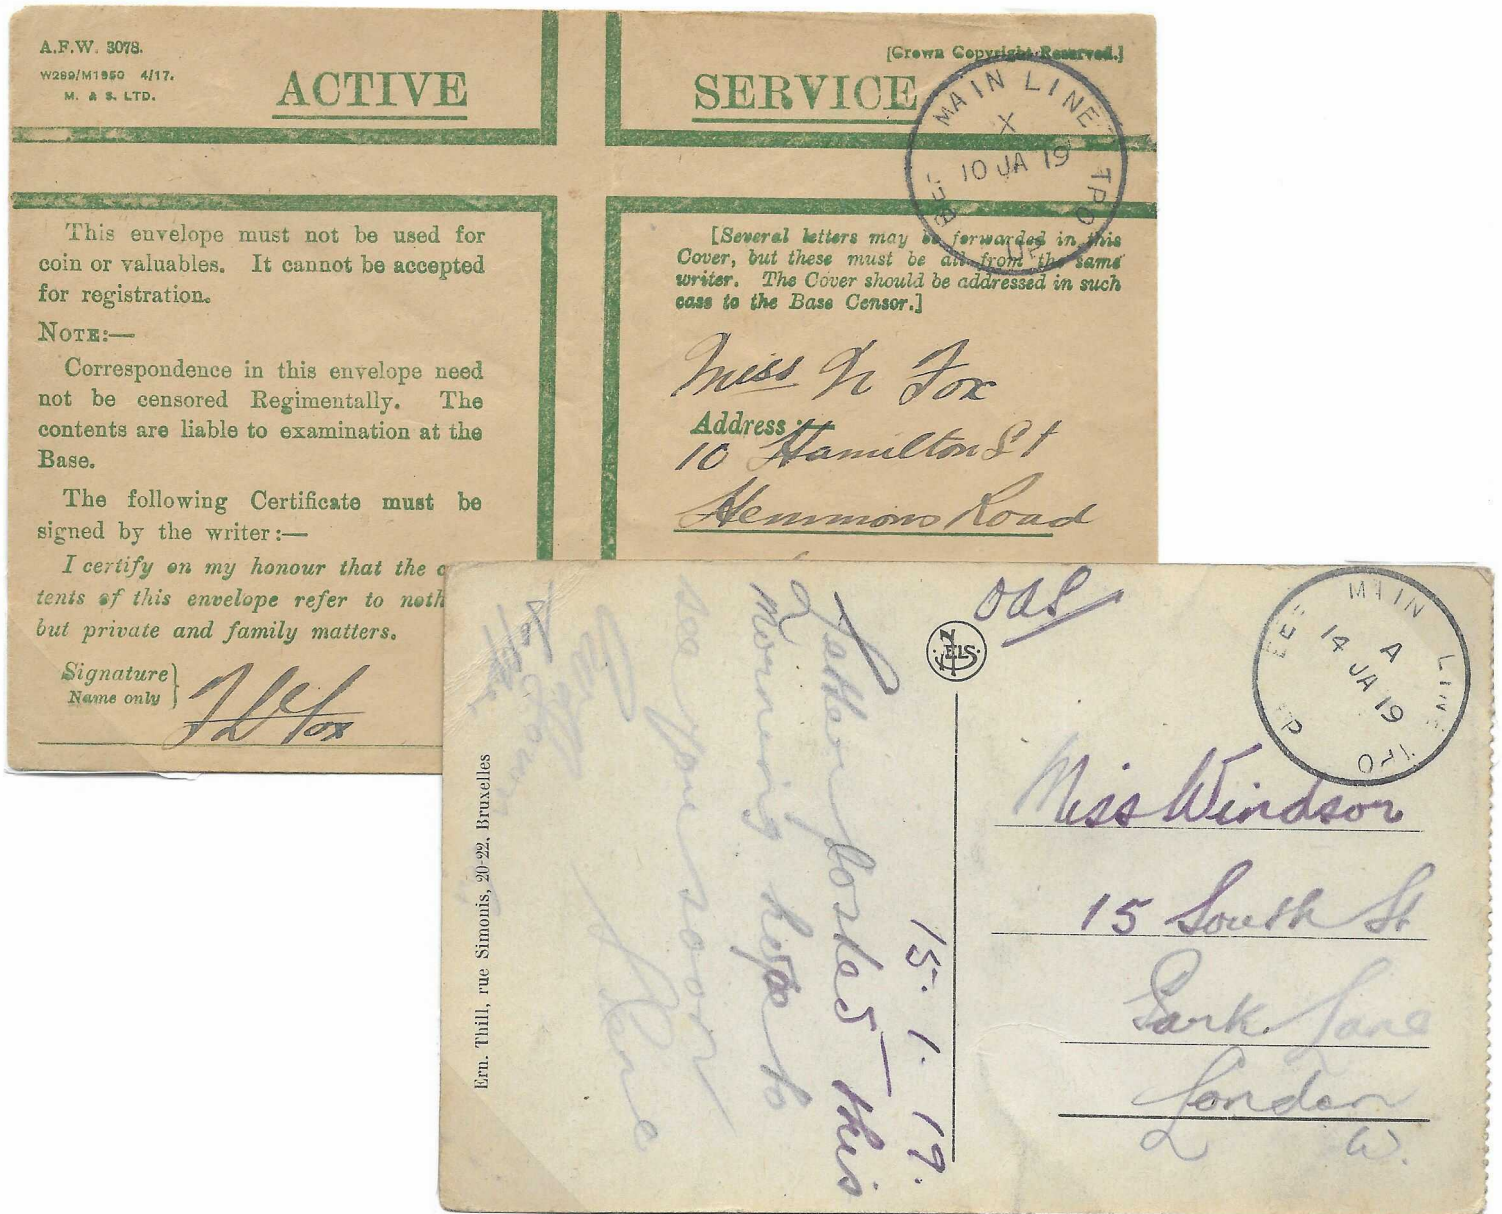 A.F.W. 3078.
W289/M1950 4/17.
M. & S. LTD.
ACTIVE SERVICE
[Crown Copyright Reserved.]
MAIN LINE TPO
X
10 JA 19
UP
This envelope must not be used for
coin or valuables. It cannot be accepted
for registration.
NOTE:—
Correspondence in this envelope need
not be censored Regimentally. The
contents are liable to examination at the
Base.
The following Certificate must be
signed by the writer:—
I certify on my honour that the
tents of this envelope refer to
but private and family matters.
Signature
Name only
F L Fox
[Several letters may be forwarded in this
Cover, but these must be all from the same
writer. The Cover should be addressed in such
case to the Base Censor.]
Miss N Fox
Address:—
10 Hamilton St
Hemmons Road
OAS
MAIN LINE TPO
A
14 JA 19
NELS
Ern. Thill, rue Simonis, 20-22, Bruxelles
15.1.19.
posted this
morning hope to
see you soon
Miss Windsor
15 South St
Park Lane
London
W.